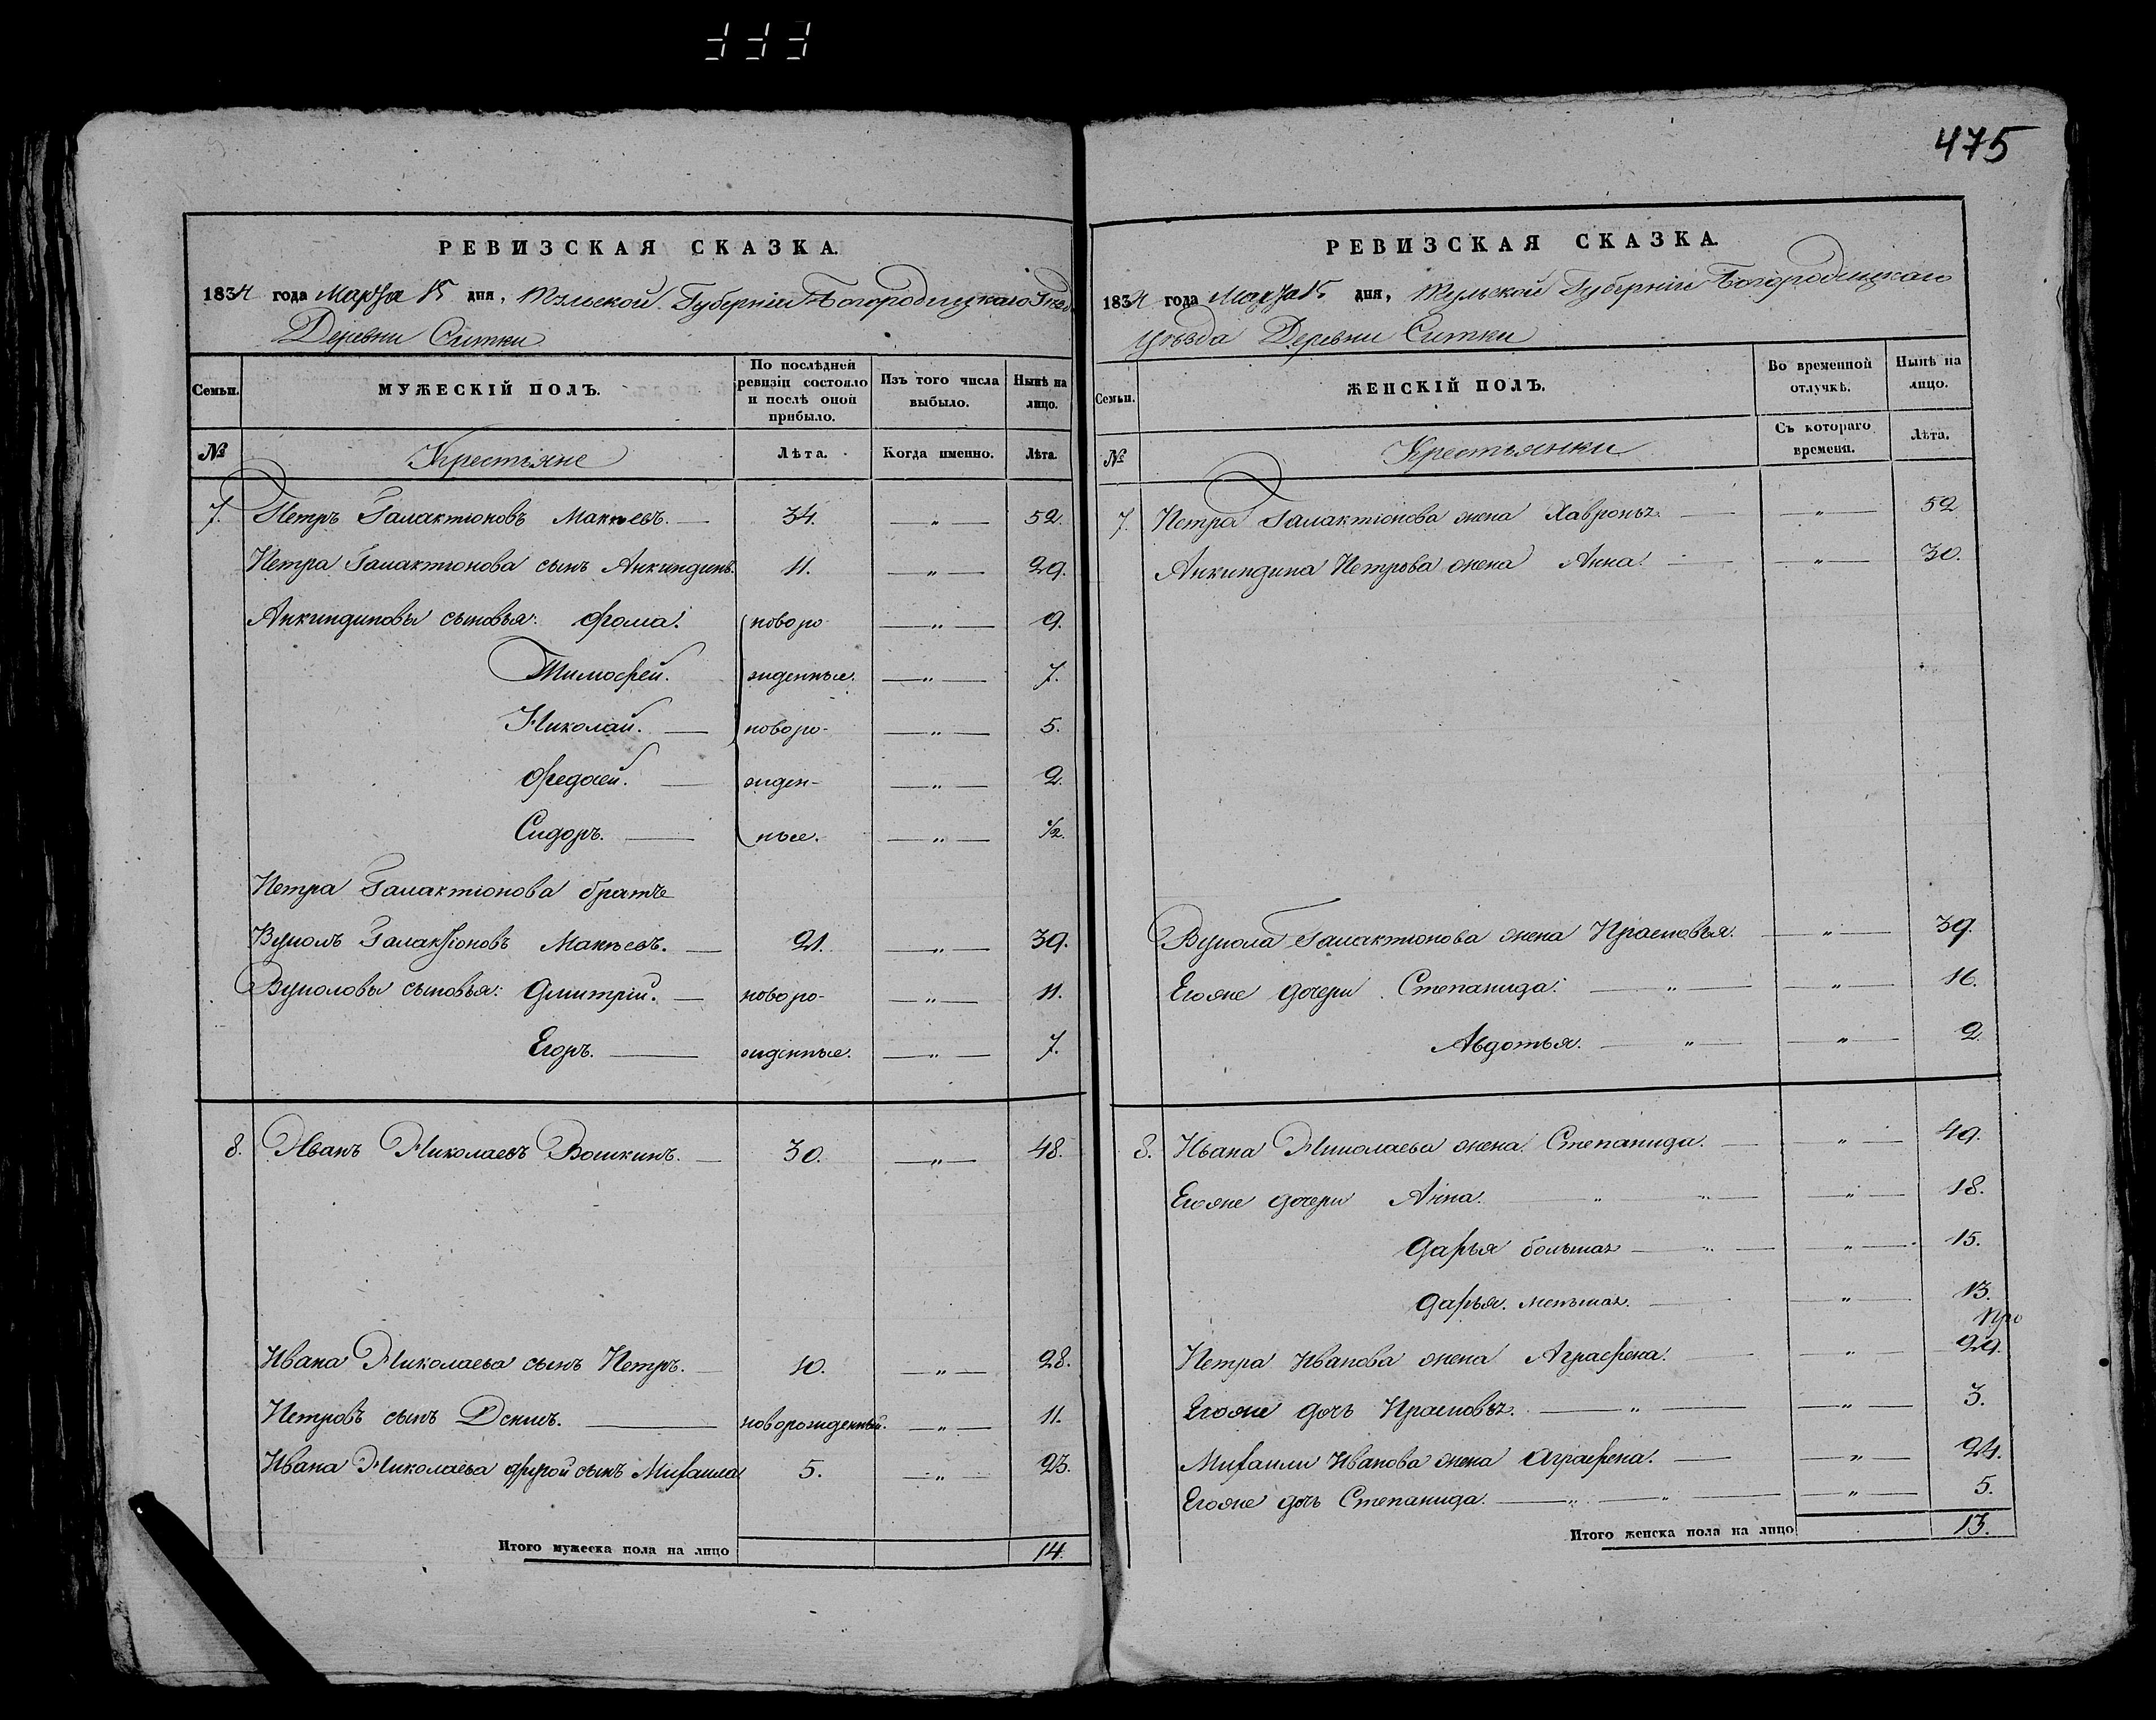 475
РЕВИЗСКАЯ СКАЗКА.
1834 года Марта 15 дня, Тульской Губерніи Богородицкаго Уѣзда
Деревни Ситки
Семьи. МУЖЕСКІЙ ПОЛЪ. По послѣдней ревизіи состояло и послѣ оной прибыло. Изъ того числа выбыло. Нынѣ на лицо.
№ Крестьяне Лѣта. Когда именно. Лѣта.
7. Петръ Галактіоновъ Макѣевъ. — 34. — „ — 52.
Петра Галактіонова сынъ Анкиндинъ. 11. — „ — 29.
Анкиндиновы сыновья: Фома. новоро — „ — 9.
Тимофей. жденные. — „ — 7.
Николай. — новоро- — „ — 5.
Федосей. — жден- — „ — 2.
Сидоръ. — ные. — „ — ½.
Петра Галактіонова братъ
Вуколъ Галактіоновъ Макѣевъ. — 21. — „ — 39.
Вуколовы сыновья: Дмитрій. — новоро- — „ — 11.
Егоръ. — жденные. — „ — 7.
8. Иванъ Николаевъ Вошкинъ. — 30. — „ — 48.
Ивана Николаева сынъ Петръ. — 10. — „ — 28.
Петровъ сынъ Денисъ. — новорожденный. — „ — 11.
Ивана Николаева другой сынъ Михаила 5. — „ — 23.
Итого мужеска пола на лицо 14.
РЕВИЗСКАЯ СКАЗКА.
1834 года Марта 15 дня, Тульской Губерніи Богородицкаго
Уѣзда Деревни Ситки
Семьи. ЖЕНСКІЙ ПОЛЪ. Во временной отлучкѣ. Нынѣ на лицо.
№ Крестьянки Съ котораго времени. Лѣта.
7. Петра Галактіонова жена Хавронья. — „ — 52
Анкиндина Петрова жена Анна. — „ — 30.
Вукола Галактіонова жена Прасковья. — „ — 39.
Егоже дочери Степанида. — „ — — „ — 16.
Авдотья. — „ — — „ — 2.
8. Ивана Николаева жена Степанида. — — „ — 49.
Егоже дочери Анна. „ „ — „ — 18.
Дарья большая — „ — — „ — 15.
Дарья меньшая. — — „ — 13.
Петра Иванова жена Аграфена. — — „ — 29.
Егоже дочь Прасковья. — „ — — „ — 3.
Михаили Иванова жена Аграфена. — — „ — 24.
Егоже дочь Степанида. — „ — „ — — „ — 5.
Итого женска пола на лицо 13.